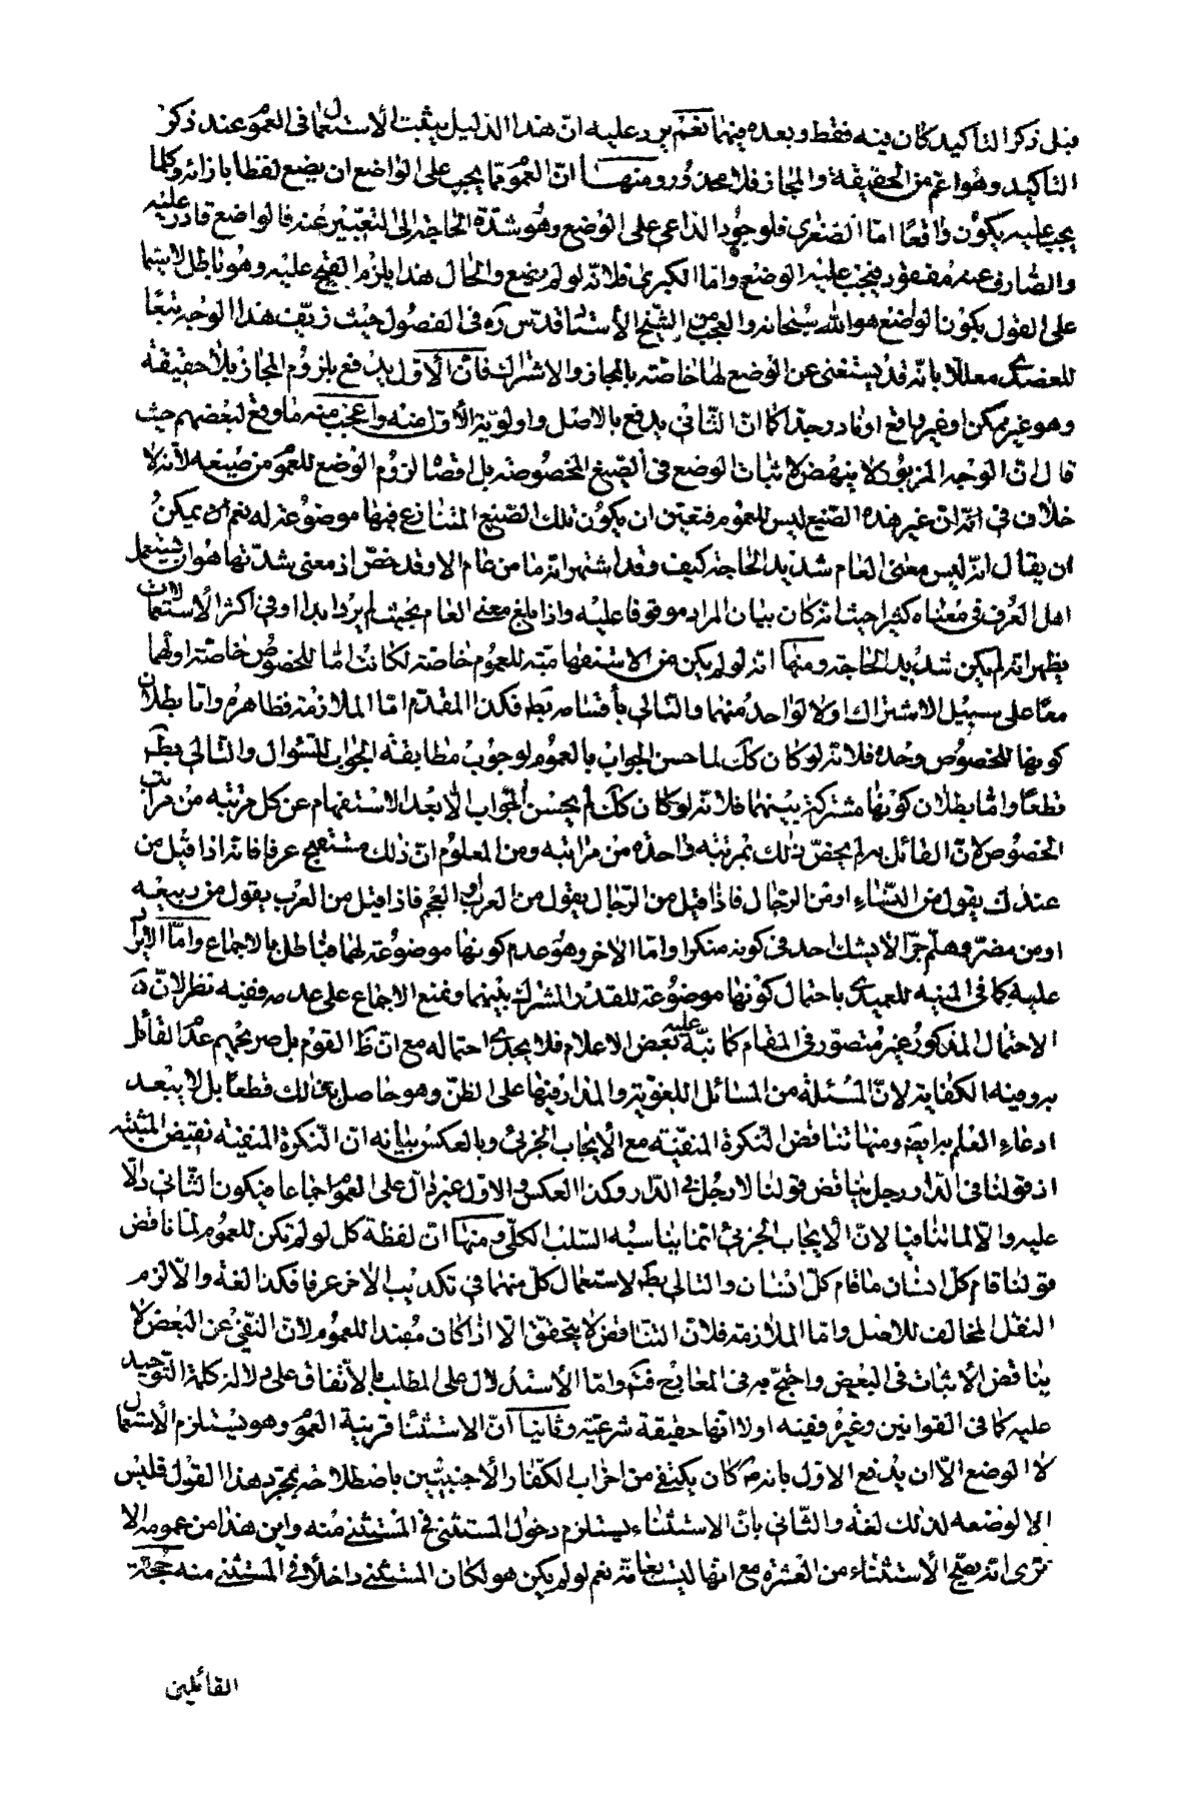 قبل ذكر التأكيد كان فيه فقط وبعده فيهما نعم يرد عليه انّ هذا الدّليل يثبت الاستعمال فى العموم عند ذكر
التاكيد وهو اعمّ من الحقيقة والمجاز فلا محذور ومنها انّ العموم ممّا يجب على الواضع ان يضع لفظا بازائه وكلما
يجب عليه يكون واقعًا امّا الصّغرى فلوجود الدّاعى على الوضع وهو شدّة الحاجة الى التّعبير عنه فالواضع قادر عليه
والصّارف عنه مفقود فيجب عليه الوضع وامّا الكبرى فلانّه لو لم يضع والحال هذا يلزم القبح عليه وهو باطل لا سيّما
على القول بكون الواضع هو الله سبحانه والعجب من الشّيخ الأستاد قدّس ره فى الفصول حيث زيّف هذا الوجه تبعًا
للعضدى معللا بانّه قد يستغنى عن الوضع لها خاصّة بالمجاز والاشتراك فانّ الأوّل يدفع بلزوم المجاز بلا حقيقة
وهو غير ممكن او غير واقع او نادر جدّا كما انّ الثّانى يدفع بالاصل واولويّة الأوّل منه واعجب منه ما وقع لبعضهم حيث
قال انّ الوجه المزبور لا ينهض لاثبات الوضع فى الصّيغ المخصوصة بل اقصاه لزوم الوضع للعموم من صيغه لأنه لا
خلاف فى انّ غير هذه الصّيغ ليس للعموم فتعيّن ان يكون تلك الصّيغ المتنازع فيها موضوعة له نعم يمكن
ان يقال انّه ليس معنى العام شديد الحاجة كيف وقد اشتهر انّه ما من عام الا وقد خصّ اذ معنى شدّتها هو ان يستعمل
اهل العرف فى معناه كثيرا بحيث انّه كان بيان المراد موقوفا عليه واذا بلغ معنى العام بحيث لم يرد ابدا او فى اكثر الأستعمالات
يظهر انّه لم يكن شديد الحاجة ومنها انّه لو لم يكن من الاستفهامية للعموم خاصّة لكانت امّا للخصوص خاصّة او لهما
معًا على سبيل الاشتراك او لا لواحد منهما والتّالى بأقسامه بط فكذا المقدّم امّا الملازمة فظاهرة وامّا بطلان
كونها للخصوص وحده فلانّه لو كان كك لما حسن الجواب بالعموم لوجوب مطابقة الجواب للسّؤال والتّالى بط
قطعًا وامّا بطلان كونها مشتركة بينهما فلانّه لو كان كك لم يحسن الجواب الّا بعد الاستفهام عن كل مرتبة من مراتب
الخصوص لانّ القائل به لم يخصّ ذلك بمرتبة واحدة من مراتبه ومن المعلوم انّ ذلك مستقبح عرفا فانّه اذا قيل من
عندك يقول من النّساء او من الرجال فاذا قيل من الرّجال يقول من العرب او العجم فاذا قيل من العرب يقول من ربيعة
او من مضر وهلمّ جرّا لا يشك احد فى كونه منكرا وامّا الاخر وهو عدم كونها موضوعة لهما فباطل بالاجماع وامّا الايراد
عليه كما فى المنية للعميدى باحتمال كونها موضوعة للقدر المشترك بينهما ونمنع الاجماع على عدمه ففيه نظر لانّ
الاحتمال المذكور غير متصوّر فى المقام كما نبّه عليه بعض الاعلام فلا يجدى احتماله مع انّ ظ القوم بل صريحهم عدم القائل
به وفيه الكفاية لانّ المسئلة من المسائل اللغويّة والمدار فيها على الظنّ وهو حاصل بذلك قطعًا بل لا يبعد
ادعاء العلم به ايضا ومنها تناقض النّكرة المنفيّة مع الأيجاب الجزئى وبالعكس بيانه انّ النّكرة المنفيّة نقيض المثبتة
اذ قولنا فى الدّار رجل يناقض قولنا لا رجل فى الدّار وكذا العكس والاوّل غير دالّ على العموم اجماعا فيكون الثّانى دالّا
عليه والّا لما تنافيا لانّ الأيجاب الجزئى انّما يناسبه السّلب الكلّى ومنها انّ لفظة كل لو لم تكن للعموم لما ناقض
قولنا قام كلّ انسان ما قام كلّ انسان والتالى بط لاستعمال كلّ منهما فى تكذيب الأخر عرفا فكذا لغة والّا لزم
النقل المخالف للاصل وامّا الملازمة فلانّ التناقض لا يتحقّق الّا اذا كان مفيدا للعموم لانّ النّفى عن البعض لا
يناقض الأثبات فى البعض واحتجّ به فى المعارج فتم وامّا الأستدلال على المطلب بالاتّفاق على دلالة كلمة التّوحيد
عليه كما فى القوانين وغيره ففيه اولا انّها حقيقة شرعيّة وثانيا انّ الاستثناء قرينة العموم وهو يستلزم الأستعمال
لا الوضع الّا ان يدفع الاوّل بانه كان يكتفى من اعراب الكفّار والأجنبيّين باصطلاحه بمجرّد هذا القول فليس
الا لوضعه لذلك لغة والثّانى بانّ الاستثناء يستلزم دخول المستثنى فى المستثنى منه واين هذا من عمومه الا
ترى انّه يصحّ الأستثناء من العشرة مع انّها ليست بعامّة نعم لو لم يكن هو لكان المستثنى داخلا فى المستثنى منه حجّة
القائلين